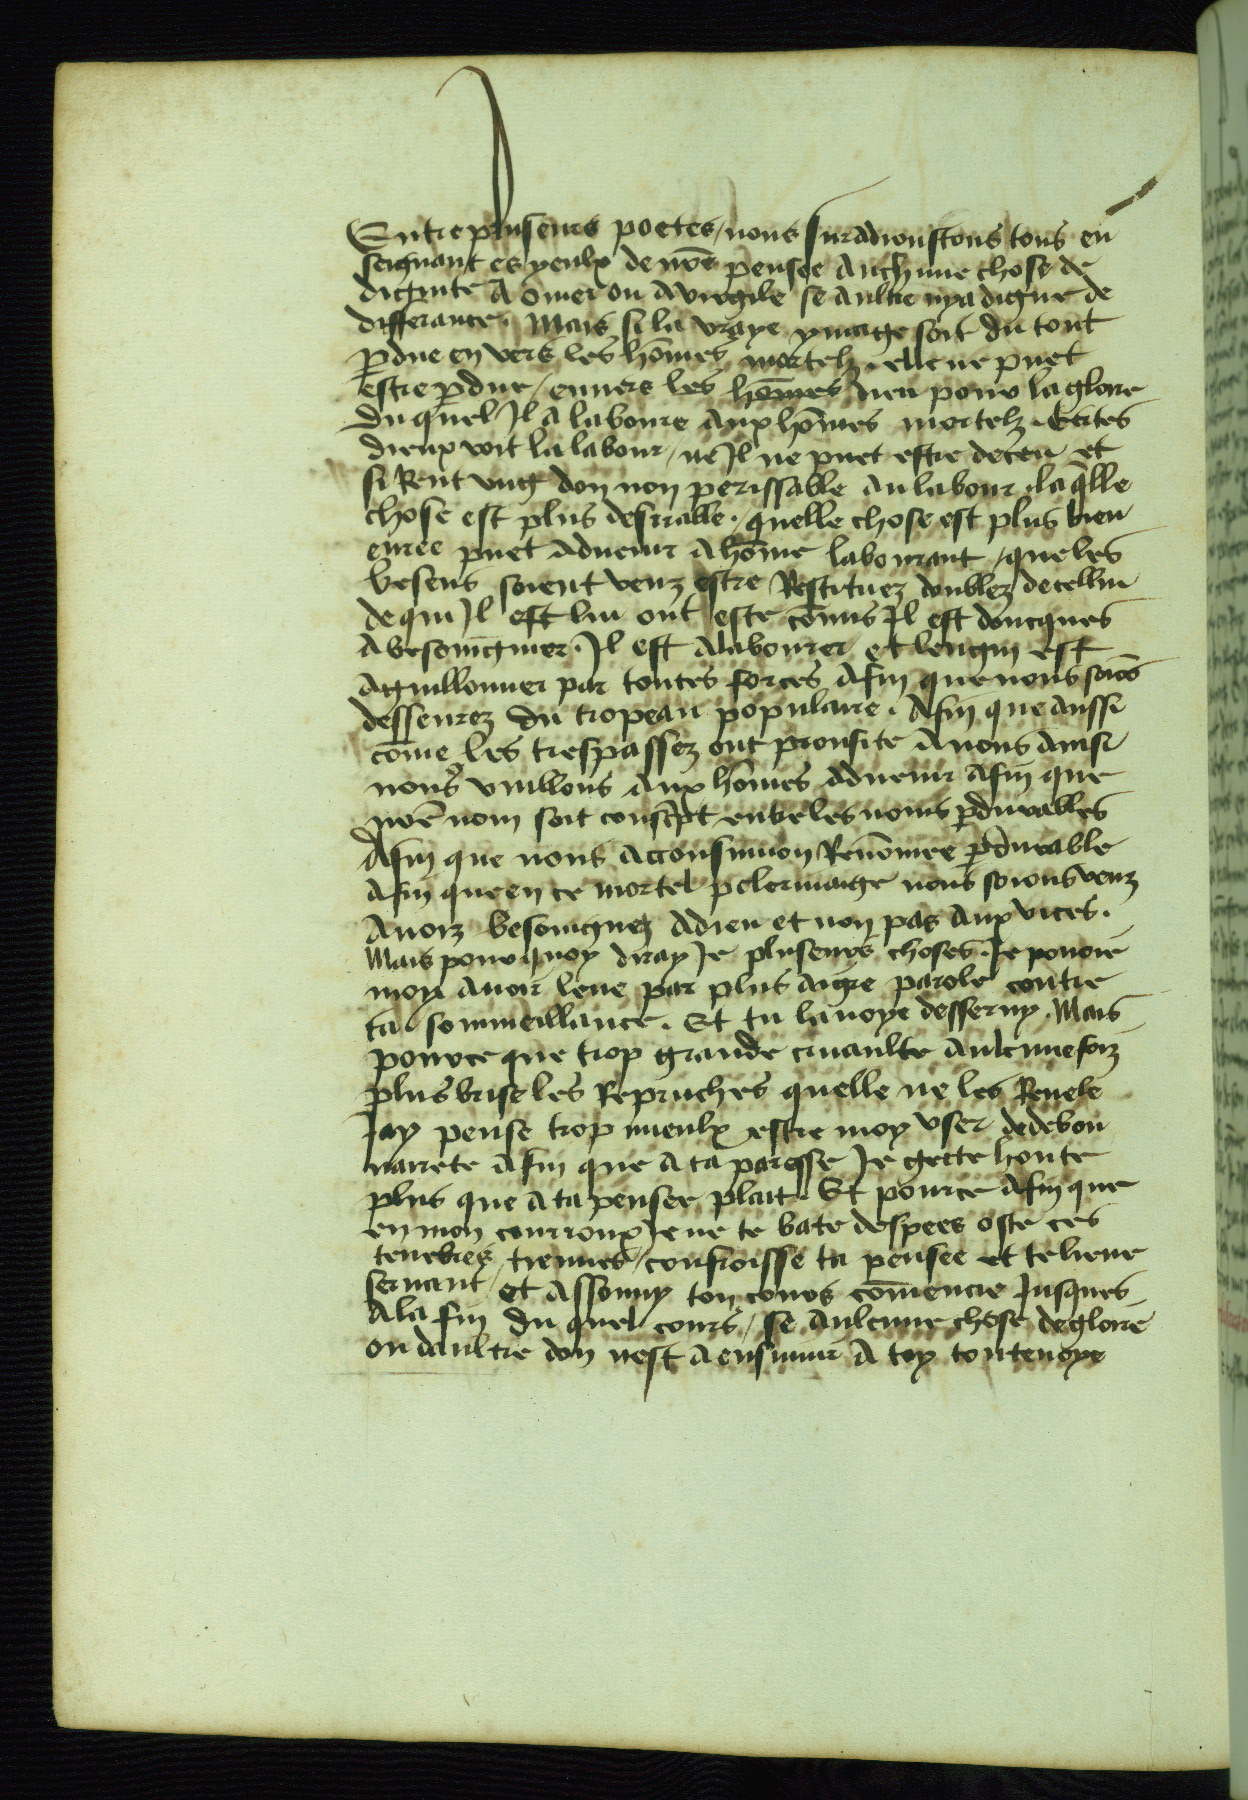 Entre pluseurs poetes / nous suradioustons tous en
seignant es yeulx de nr̃e pensee Aulchune chose de
dignite A omer ou A virgile se aultre nya digne de
differance . Mais si la vraye ymaige soit du tout
p̱due en vers les hõmes mortelz . elle ne puet
estre p̱due / envers les hõmes dieu pour la gloire
Du quel Jl A laboure Aux hõmes mortelz . Certes
dieux voit la labour / ne Jl ne puet estre deceu et
si Rent vng don non perissable Au labour . la q̃lle
chose est plus desirable . quelle chose est plus bien
euree puet Aduenir A hõme labourant / que les
besens soient venz estre Restituez doublez de cellui
de qui Jl est lui ont este cõmis Jl est doncques
A besoingnier . Jl est A labourer et lengin est
Aguillonner par toutes forces Afin que nous soiõs
desseurez du tropeau populaire . Afin que aussi
cõme les trespassez ont prouffite A nous Ainsi
nous vuillons Aux hõmes Aduenir Afin que
nr̃e nom soit conscript entre les noms p̱durables
Afin que nous Acconsuiuon Renõmee p̱durable
Afin que en ce mortel pelerinaige nous soions venz
Auoir besoingnez A dieu et non pas Aux vices .
Mais pour quoy diray Je pluseurs choses . Je pouoie
moy auoir leue par plus aigre parole contre
ta sommeillance . Et tu lauoye desseruy . Mais
pour ce que trop grande cruaulte Aulcunefoiz
plus brise les Repruches quelle ne les Reuele
Jay pense trop mieulx estre moy vser de debon
nairete Afin que A ta paresse Je gecte honte
plus que A ta pensee plait . Et pour ce Afin que
en mon courroux Je ne te bate despees oste ces
tenebres tiennes / confroisse ta pensee et te lieue
seruant / et Assouuy ton cours cõmencie Jusques
A la fin du quel cours / se Aulcune chose de gloire
ou daultre don nest A ensuiuir A toy toutenoye